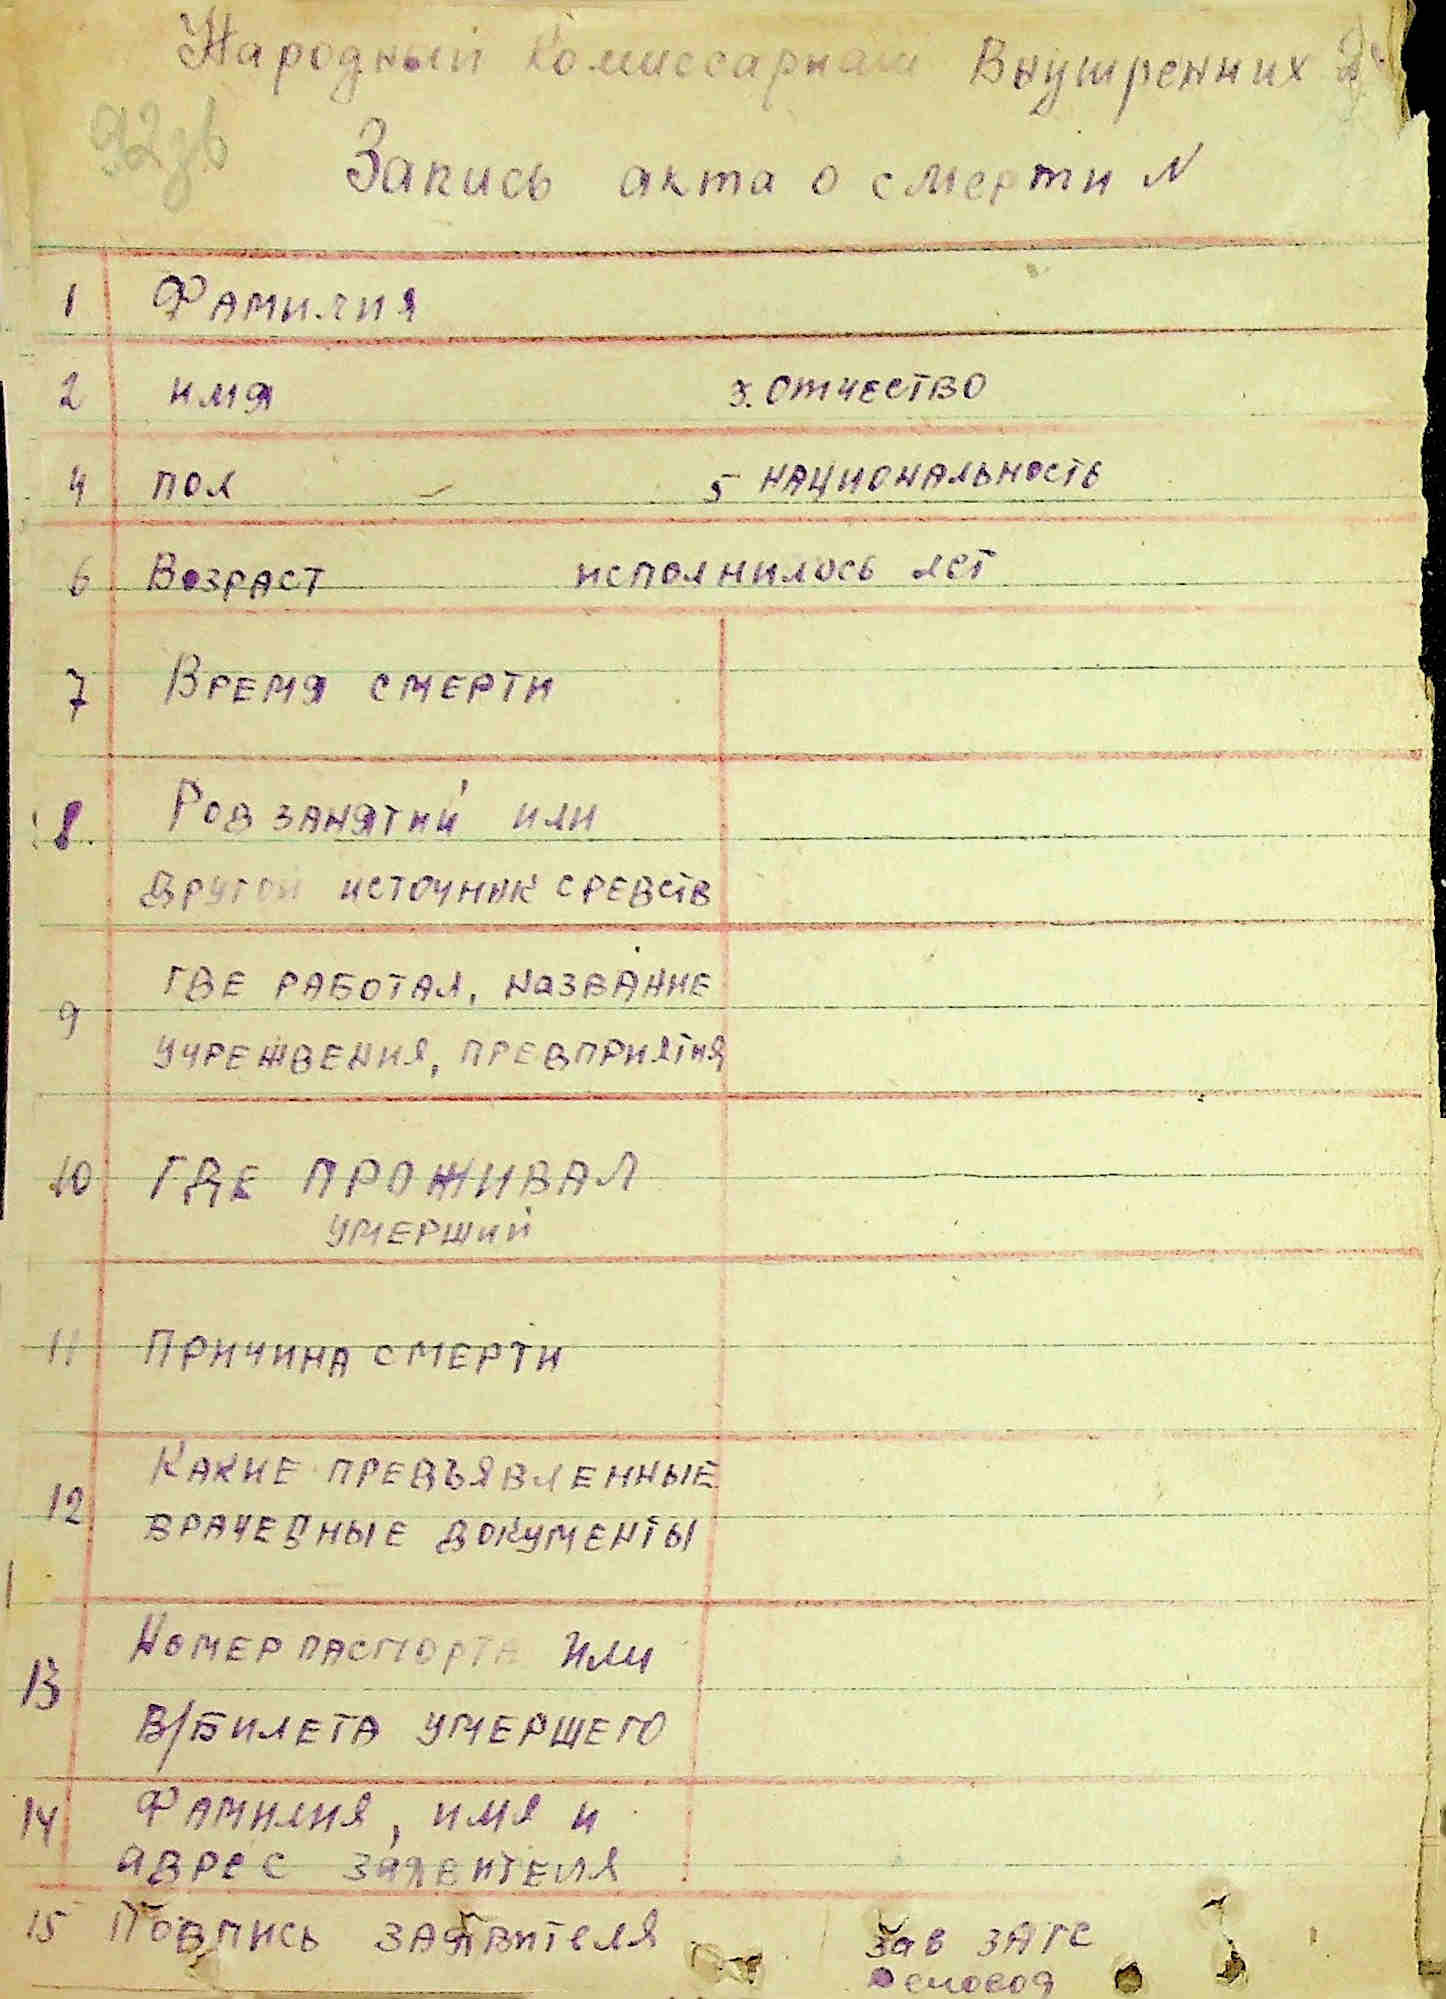 Народный Комиссариат Внутренних
Запись акта о смерти N
1 Фамилия
2 имя 3. отчество
4 пол 5 национальность
6 Возраст исполнилось лет
7 Время смерти
8. Род занятий или
другой источник средств
9 где работал, название
учреждения, предприятия
10 где проживал
умерший
11 Причина смерти
12 Какие предъявленные
врачебные документы
13 Номер паспорта или
в/билета умершего
14 Фамилия, имя и
адрес заявителя
15 Подпись заявителя зав загс